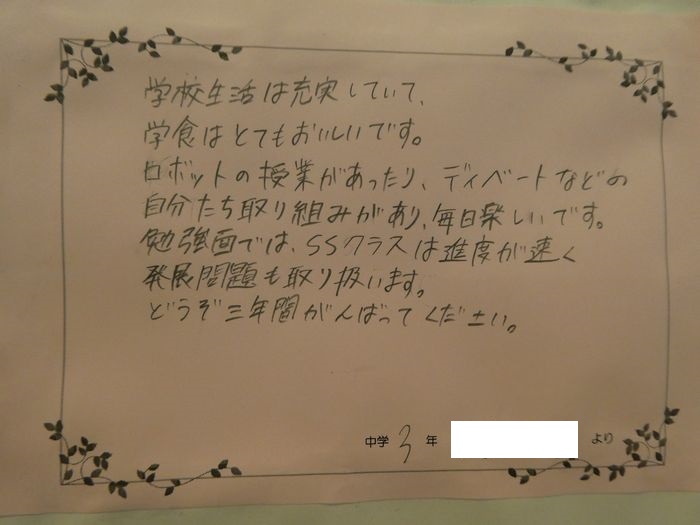 学校生活は充実していて、
学食はとてもおいしいです。
ロボットの授業があったり、ディベートなどの
自分たち取り組みがあり、毎日楽しいです。
勉強面では、SSクラスは進度が速く
発展問題も取り扱います。
どうぞ三年間がんばってください。
中学 3 年 より